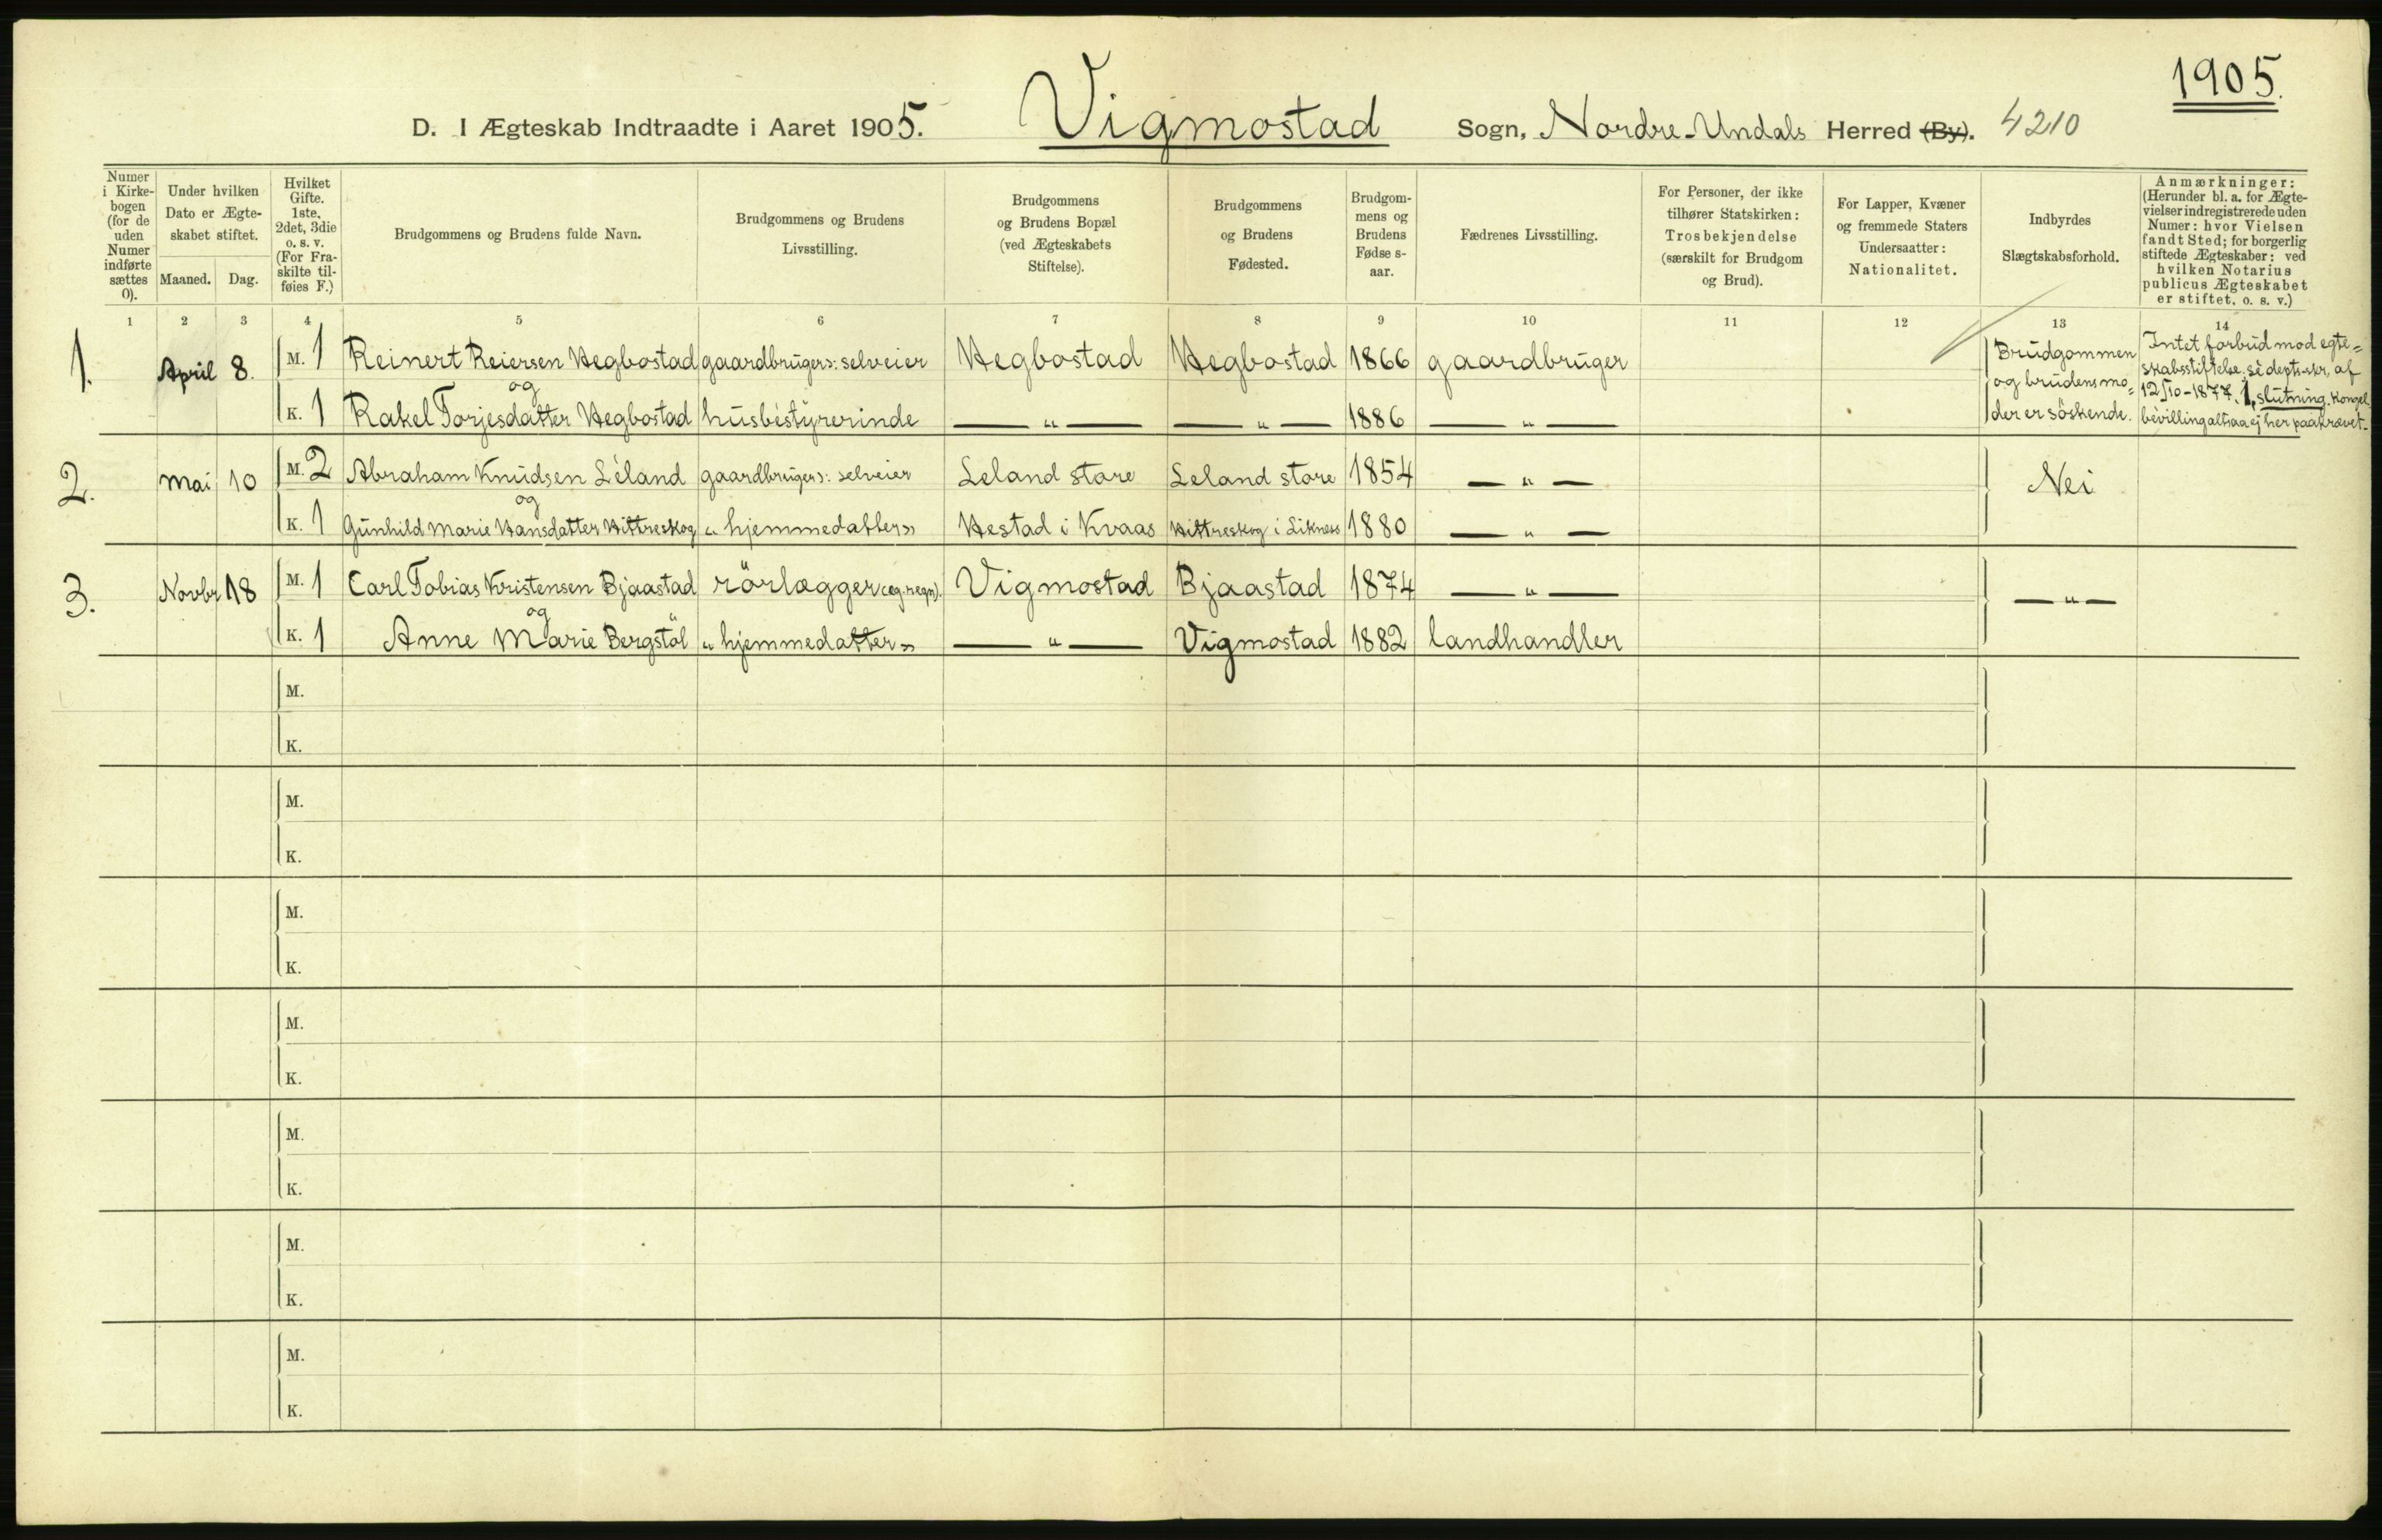 1905.
D. I Ægteskab Indtraadte i Aaret 1905. Vigmostad Sogn, Nordre-Undals Herred (By). 4210
Numer
i Kirke-
bogen
(for de
uden
Numer
indførte
sættes
0).
Under hvilken
Dato er Ægte-
skabet stiftet.
Maaned. Dag.
Hvilket
Gifte.
1ste,
2det, 3die
o. s. v.
(For Fra-
skilte til-
føies F.)
Brudgommens og Brudens fulde Navn.
Brudgommens og Brudens
Livsstilling.
Brudgommens
og Brudens Bopæl
(ved Ægteskabets
Stiftelse).
Brudgommens
og Brudens
Fødested.
Brudgom-
mens og
Brudens
Fødse s-
aar.
Fædrenes Livsstilling.
For Personer, der ikke
tilhører Statskirken:
Trosbekjendelse
(særskilt for Brudgom
og Brud).
For Lapper, Kvæner
og fremmede Staters
Undersaatter:
Nationalitet.
Indbyrdes
Slægtskabsforhold.
Anmærkninger:
(Herunder bl. a. for Ægte-
vielser indregistrerede uden
Numer: hvor Vielsen
fandt Sted; for borgerlig
stiftede Ægteskaber: ved
hvilken Notarius
publicus Ægteskabet
er stiftet, o. s. v.)
1 2 3 4 5 6 7 8 9 10 11 12 13 14
1. April 8. M. 1 Reinert Reiersen Hegbostad gaardbruger: selveier Hegbostad Hegbostad 1866 gaardbruger
og
K. 1 Rakel Torjesdatter Hegbostad husbestyrerinde — " — — " — 1886 — " —
Brudgommen
og brudens mo=
der er söskende.
Intet forbud mod egte=
skabsstiftelse, se depts-skr. af
12/10-1877, 1, slutning. Kongel.
bevilling altsaa ej her paakrævet.
2. Mai 10 M. 2 Abraham Knudsen Leland gaardbruger: selveier Leland store Leland store 1854 — " — Nei
og
K. 1 Gunhild Marie Hansdatter Hittreskog "hjemmedatter" Hestad i Kvaas Hittreskog i Likness 1880 — " —
3. Novbr 18 M. 1 Carl Tobias Kristensen Bjaastad rörlægger (eg. regn). Vigmostad Bjaastad 1874 — " — — " —
og
K. 1 Anne Marie Bergstöl "hjemmedatter" — " — Vigmostad 1882 landhandler
M.
K.
M.
K.
M.
K.
M.
K.
M.
K.
M.
K.
M.
K.